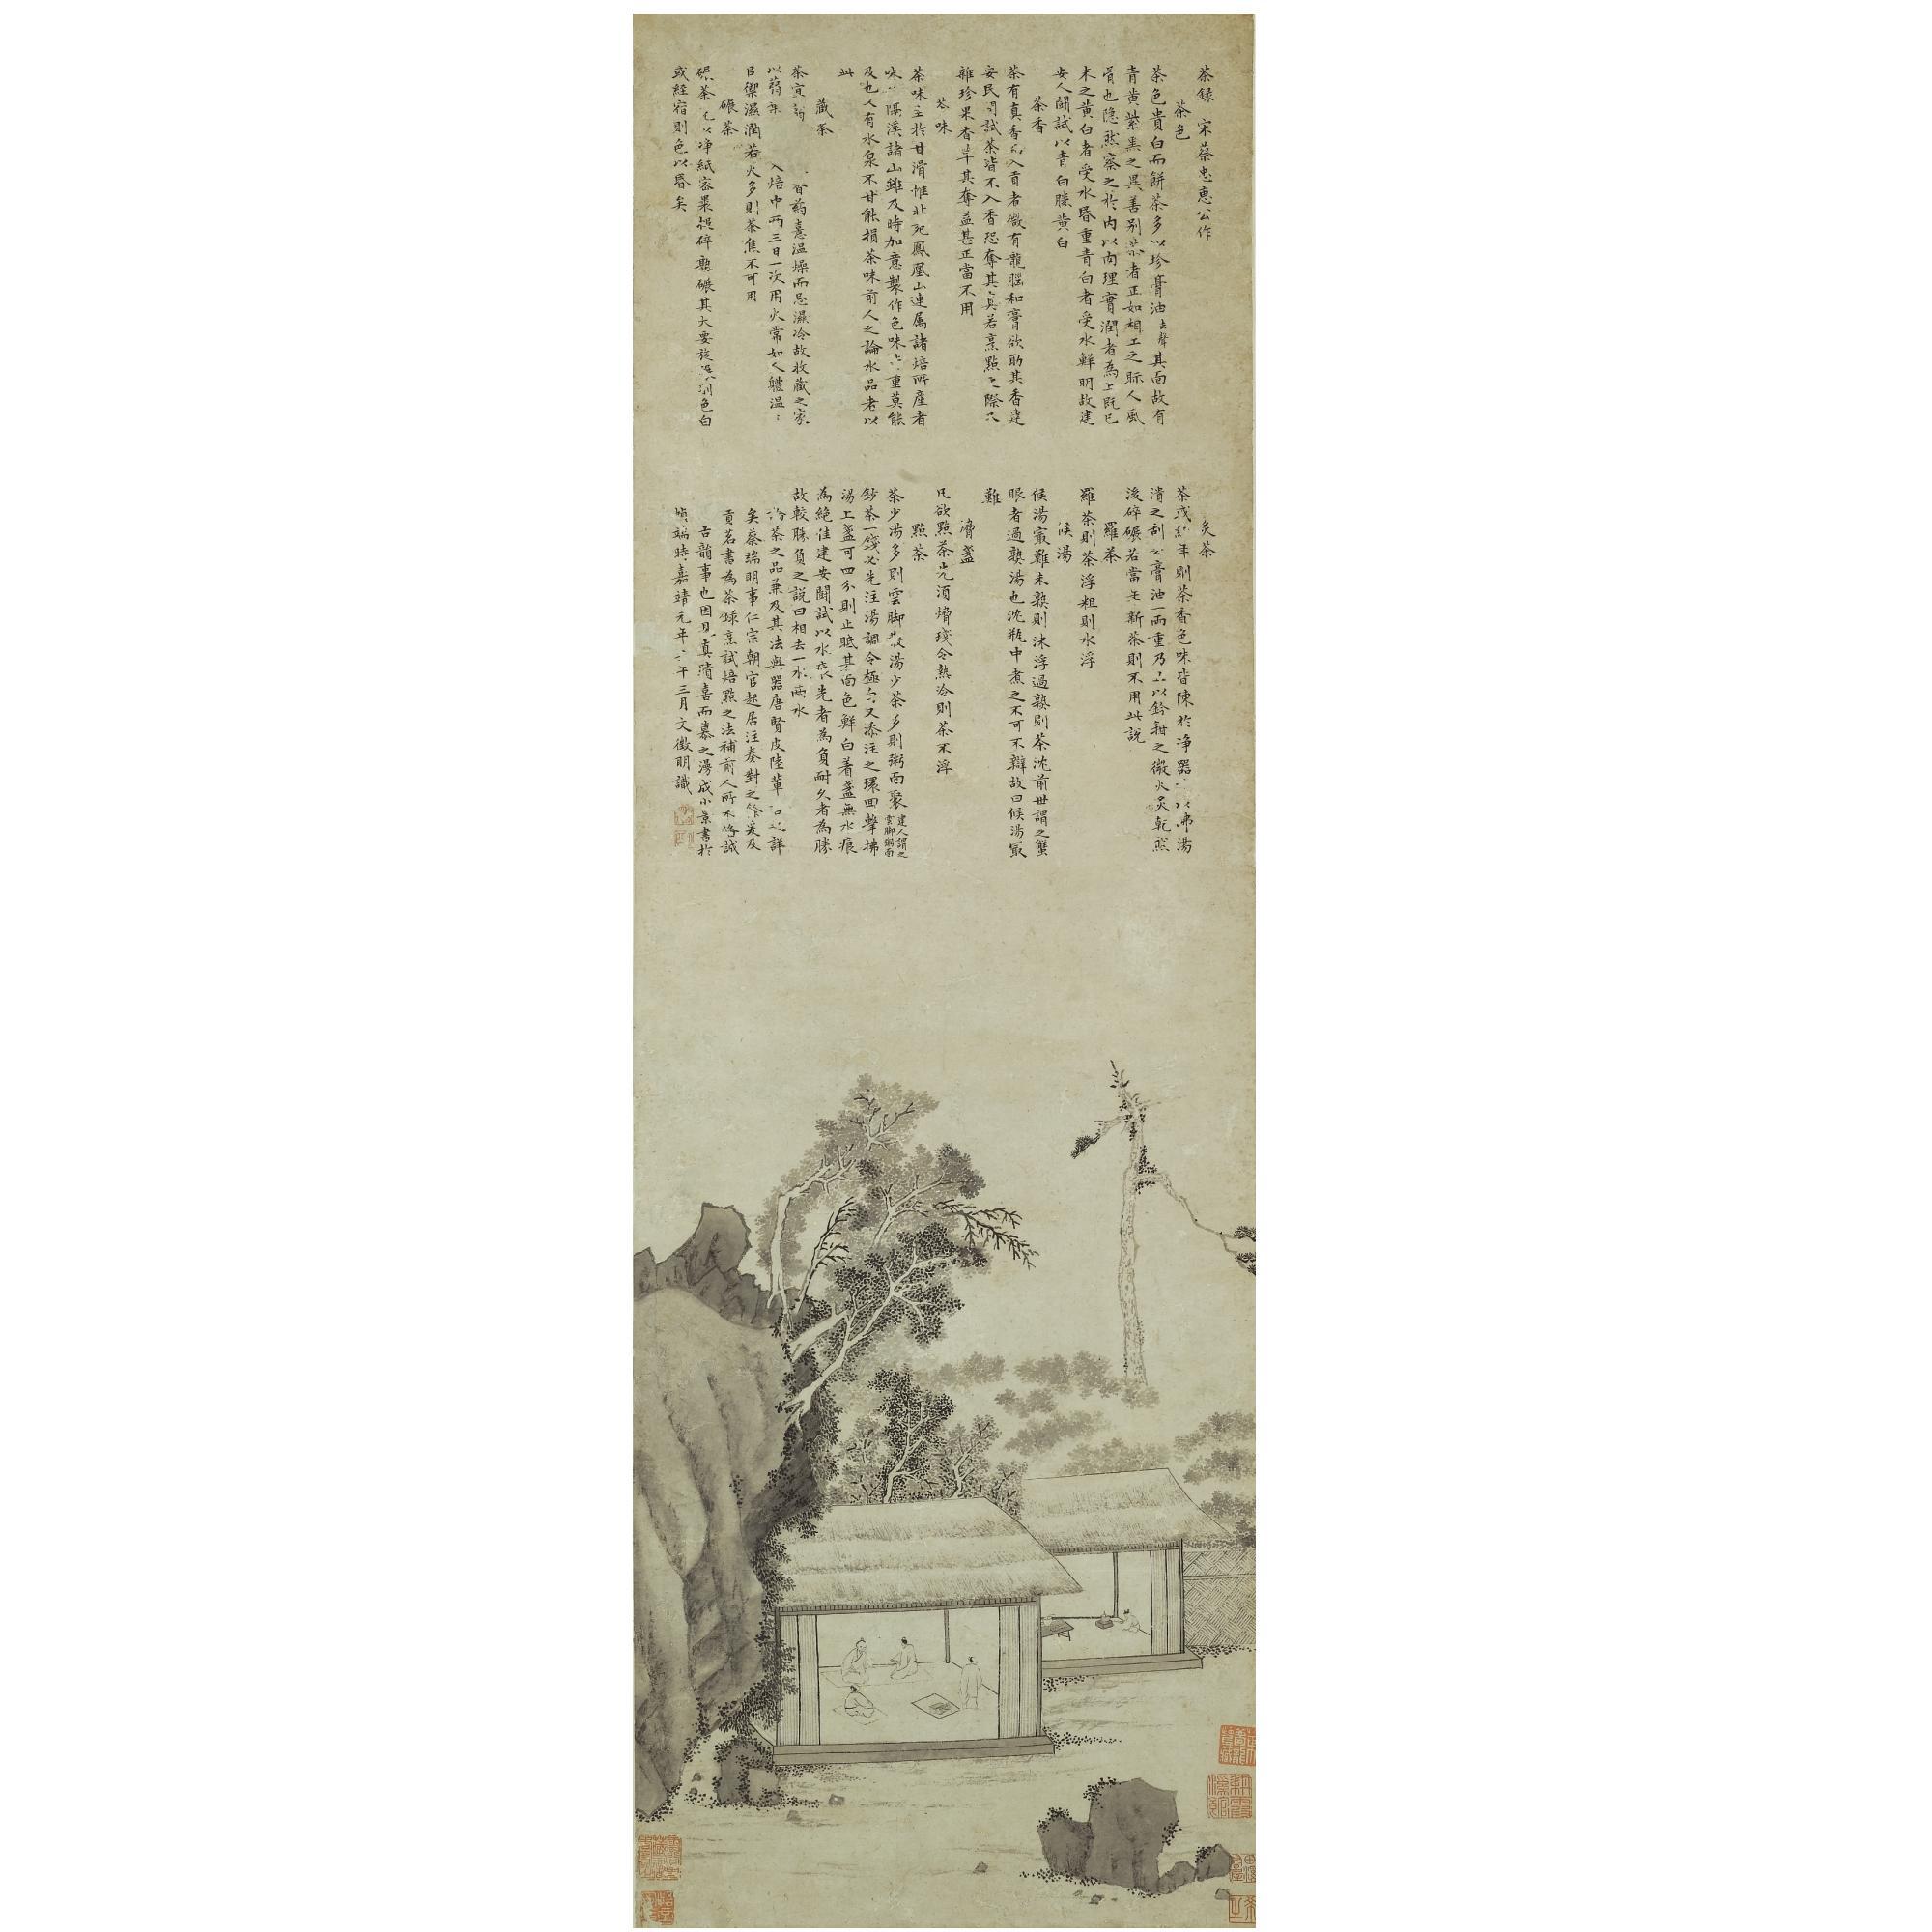 茶録 宋蔡忠惠公作
茶色
茶色貴白而餅茶多以珍膏油去聲其面故有
青黃紫黑之異善別茶者正如相工之眎人氣
骨也隐然察之於內以肉理實潤者為上既已
末之黃白者受水昏重青白者受水鮮明故建
安人鬪試以青白勝黃白
茶香
茶有真香而入貢者微有龍腦和膏欲助其香建
安民間試茶皆不入香恐奪其真若烹點之際又
雜珍果香草其奪益甚正當不用
茶味
茶味主於甘滑惟北苑鳳凰山連属諸焙所產者
味 隔溪諸山雖及時加意製作色味 重莫能
及也人有水泉不甘能損茶味前人之論水品者以
此
藏茶
茶宜蒻 香葯憙温燥而忌濕冷故收藏之家
以蒻 入焙中兩三日一次用火常如人軆温
以禦濕潤若火多則茶焦不可用
碾茶
碾茶先以净紙密裹搥碎熟碾其大要旋碾則色白
或經宿則色以昏矣
炙茶
茶或經年則茶香色味皆陳於净器 以沸湯
漬之刮去膏油一兩重乃止以鈐鉗之微火炙乾然
後碎碾若當年新茶則不用此說
羅茶
羅茶則茶浮粗則水浮
候湯
候湯冣難未熟則沫浮過熟則茶沈前世謂之蟹
眼者過熟湯也沈瓶中煮之不可不辯故曰候湯冣
難
熁盞
凡欲點茶先須熁琖令熱冷則茶不浮
點茶
茶少湯多則雲脚散湯少茶多則粥面聚建人謂之雲脚粥面
鈔茶一錢必先注湯調令極匀又添注之環回擊拂
湯上盞可四分則止眂其面色鮮白著盞無水痕
為絶佳建安鬪試以水痕先者為負耐久者為勝
故較勝負之說曰相去一水兩水
茶之品兼及其法與器唐賢皮陸輩 詳
矣蔡端明事仁宗朝官起居注奏對之餘爰及
貢茗書為茶録烹試焙點之法補前人所不倄誠
古韻事也因見真蹟喜而慕之漫成小景書於
幀端時嘉靖元年壬午三月文徵明識